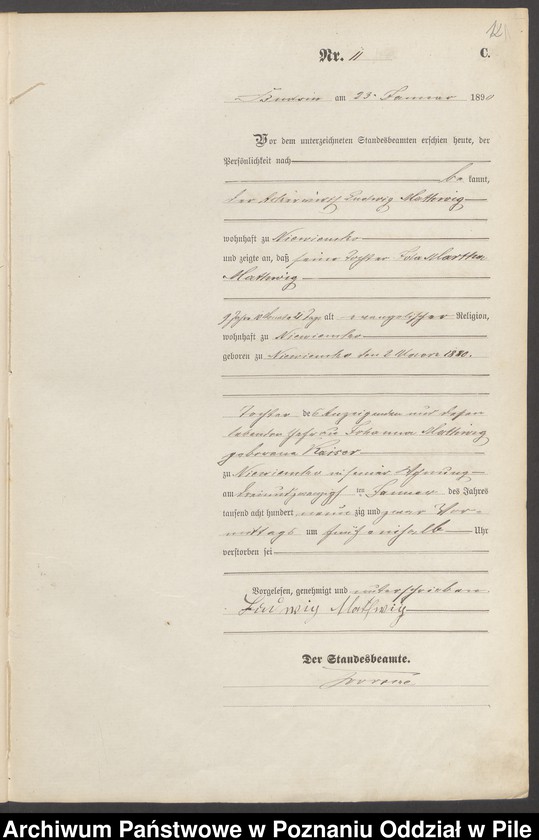 121
Nr. 11 C.
am 23. Januar 1890
Vor dem unterzeichneten Standesbeamten erschien heute, der
Persönlichkeit nach
be kannt,
der Ackerwirth Ludwig Mathwig
wohnhaft zu Niewiemko
und zeigte an, daß seine Tochter Martha
Mathwig
9 Jahr 10 Monate 21 Tage alt evangelischer Religion,
wohnhaft zu Niewiemko
geboren zu Niewiemko den 2. Maerz 1880.
Tochter des Anzeigenden und dessen
lebenden Ehefrau Johanna Mathwig
geborene Kaiser
zu Niewiemko in seiner Wohnung
am dreiundzwanzigsten ten Januar des Jahres
tausend acht hundert neun zig und zwar Vor-
mittags um fünf einhalb Uhr
verstorben sei
Vorgelesen, genehmigt und unterschrieben
Ludwig Mathwig
Der Standesbeamte.
Archiwum Państwowe w Poznaniu Oddział w Pile